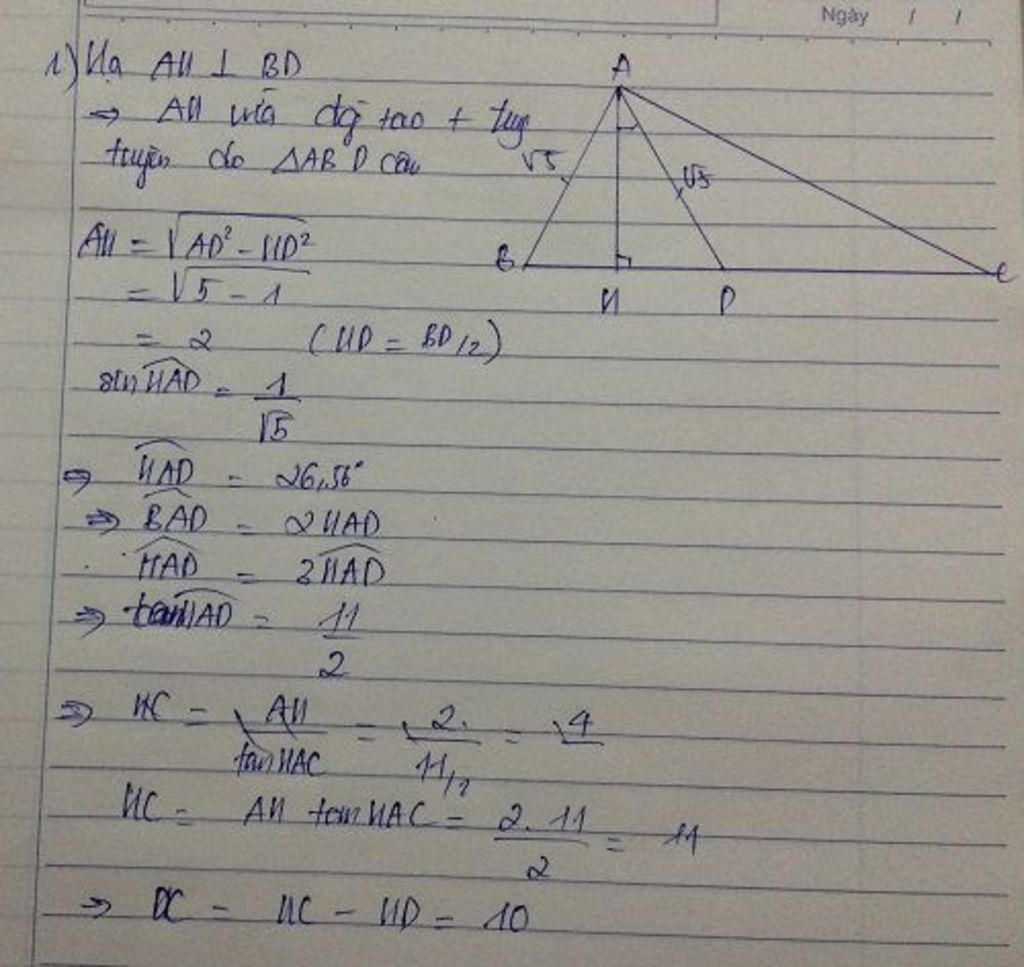 Ngày / /
1) Hạ AH ⊥ BD
⇒ AH vừa đg cao + tug
tuyến do ΔABD cân
A
√5
√5
B
H
D
C
AH = √AD² - HD²
= √5 - 1
= 2 (HD = BD/2)
sin HAD = 1/√5
⇒ HAD = 26,56°
⇒ BAD = 2HAD
HAD = 3HAD
⇒ tan HAD = 11/2
⇒ HC = AH/tan HAC = 2./11/2 = 4
HC = AH tan HAC = 2.11/2 = 11
⇒ DC = HC - HD = 10